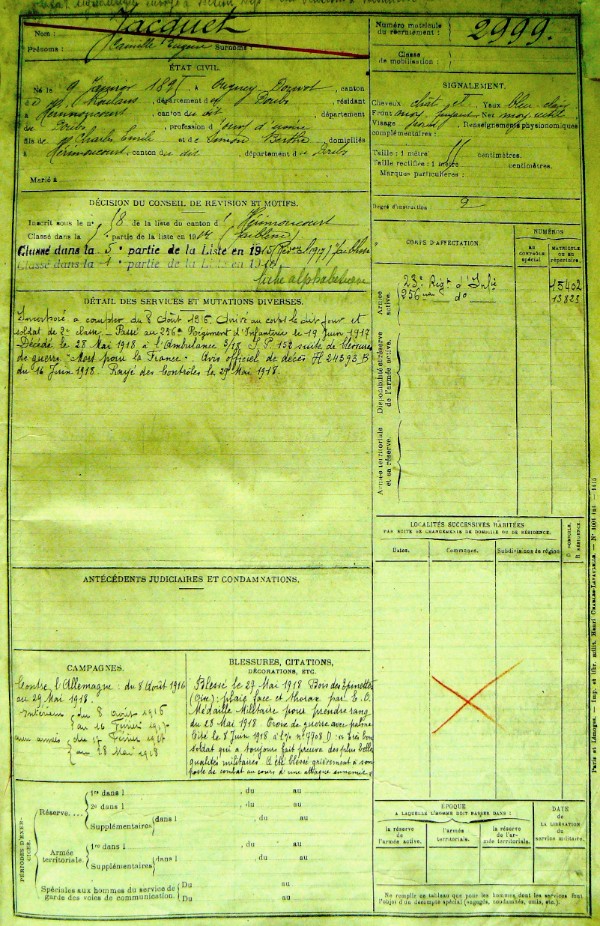 Nom : Jacquet
Prénoms : Camille Eugène Surnoms :
Numéro matricule
du recrutement :
2999.
Classe
de mobilisation :
ÉTAT CIVIL.
Né le 9 Janvier 1895, à Doznot, canton
d , département d Doubs, résidant
à Hérimoncourt, canton du dit, département
du Doubs, profession d
fils de Charles Emile et de Simon Berthe, domiciliés
à Hérimoncourt, canton du dit, département du Doubs
Marié à
SIGNALEMENT.
Cheveux Yeux bleu clair
Front moy Nez moy
Visage Renseignements physionomiques
complémentaires :
Taille : 1 mètre centimètres.
Taille rectifiée : 1 mètre centimètres.
Marques particulières :
Degré d'instruction :
DÉCISION DU CONSEIL DE RÉVISION ET MOTIFS.
Inscrit sous le n° 18 de la liste du canton d Hérimoncourt
Classé dans la partie de la liste en 19
Classé dans la 5e partie de la Liste en 1915
Classé dans la 1 partie de la Liste en 19
liste alphabétique
CORPS D'AFFECTATION.
NUMÉROS
AU
CONTRÔLE
spécial
MATRICULE
OU AU
RÉPERTOIRE.
Armée
active.
23e Régt d'Infie 15402
256ème do 13823
Disponibilité et réserve
de l'armée active.
Armée territoriale
et sa réserve.
DÉTAIL DES SERVICES ET MUTATIONS DIVERSES.
Incorporé à compter du 8 Août 1915. Arrivé au corps le dit jour et
soldat de 2e classe. Passé au 256e Régiment d'Infanterie le 19 Juin 1917
Décédé le 28 Mai 1918 à l'Ambulance 5/18 S.P. 152 suite de blessures
de guerre "Mort pour la France". Avis officiel de décès A 24393 B
du 16 Juin 1918. Rayé des Contrôles le 29 Mai 1918.
LOCALITÉS SUCCESSIVES HABITÉES
PAR SUITE DE CHANGEMENTS DE DOMICILE OU DE RÉSIDENCE.
Dates. Communes. Subdivisions de région D. DOMICILE. R. RÉSIDENCE.
ANTÉCÉDENTS JUDICIAIRES ET CONDAMNATIONS.
CAMPAGNES.
Contre l'Allemagne : du 8 Août 1915
au 29 Mai 1918.
Intérieur du 8 août 1915
au 16 février 1917
aux armées du 17 février 1917
au 28 Mai 1918
BLESSURES, CITATIONS,
DÉCORATIONS, ETC.
Blessé le 27 Mai 1918 Bois des Epinettes
(Oise) : plaie face et thorax par E.O.
Médaille Militaire pour prendre rang
du 28 Mai 1918. Croix de guerre avec palme
Cité le 8 Juin 1918 n° 7908 D : « Très bon
soldat qui a toujours fait preuve des plus belles
qualités militaires. A été blessé grièvement à son
poste de combat au cours d'une attaque ennemie. »
PÉRIODES D'EXERCICES.
Réserve....
1re dans l , du au
2e dans l , du au
Supplémentaires dans l , du au
Armée
territoriale.
1re dans l , du au
Supplémentaires dans l , du au
Spéciales aux hommes du service de
garde des voies de communication.
Du au
Du au
ÉPOQUE
À LAQUELLE L'HOMME DOIT PASSER DANS :
la réserve
de l'armée active.
l'armée
territoriale.
la réserve
de l'armée territoriale.
DATE
DE LA LIBÉRATION
du
service militaire.
Ne remplir ce tableau que pour les hommes dont les services font
l'objet d'un décompte spécial (engagés, condamnés, omis, etc.).
Paris et Limoges. — Imp. et libr. milit. Henri CHARLES-LAVAUZELLE.